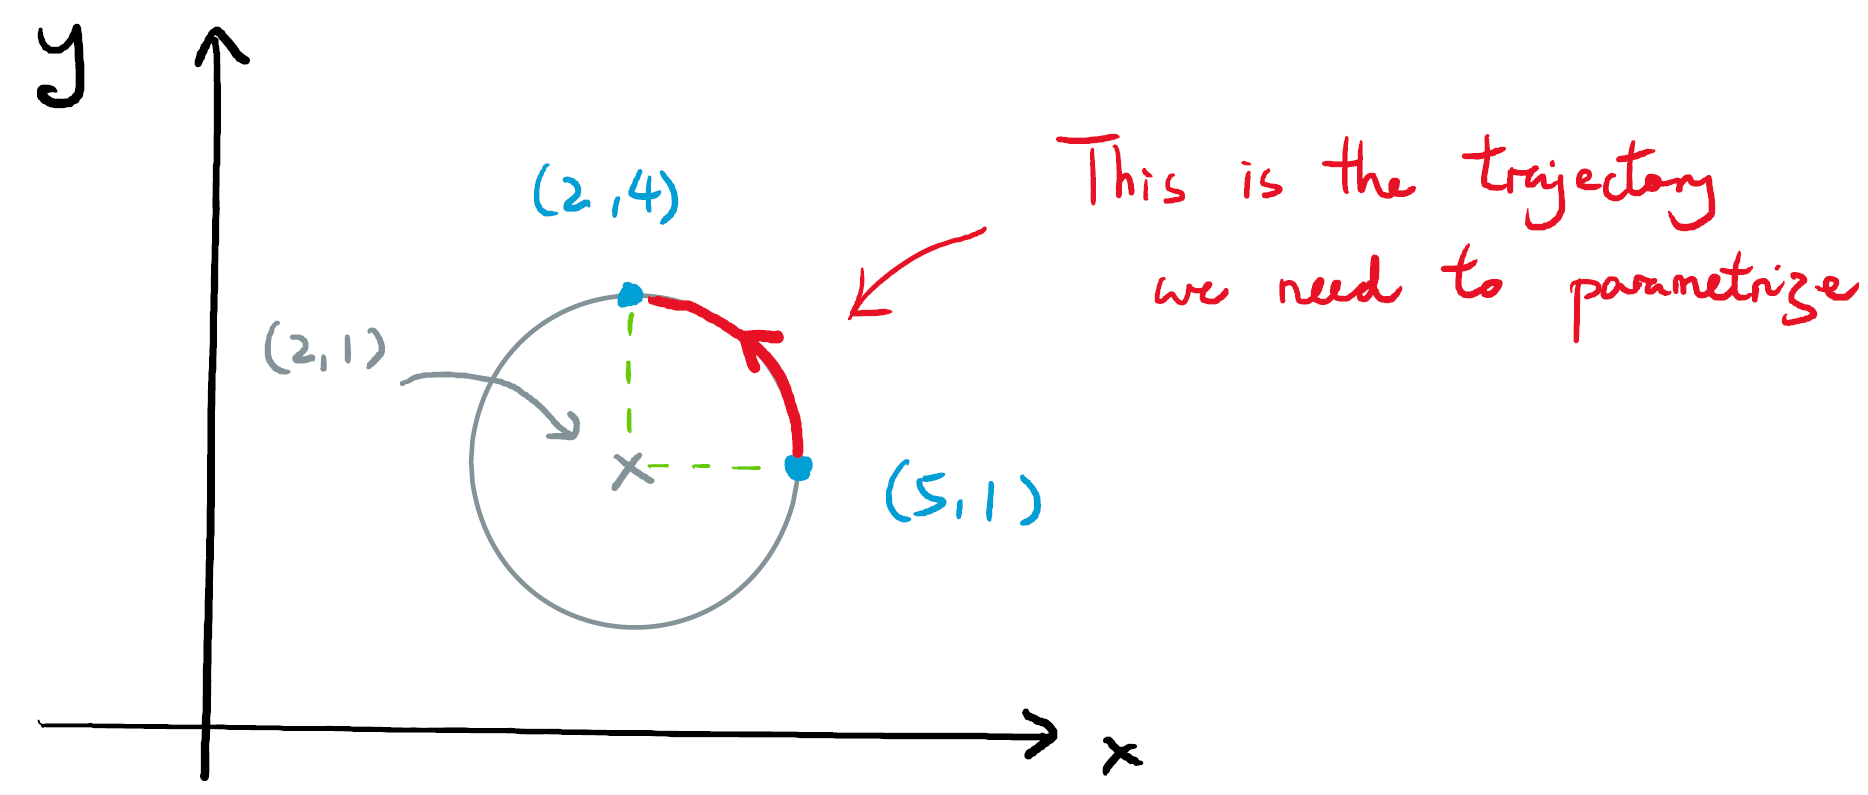 y
(2,4)
This is the trajectory
we need to parametrize
(2,1)
(5,1)
x